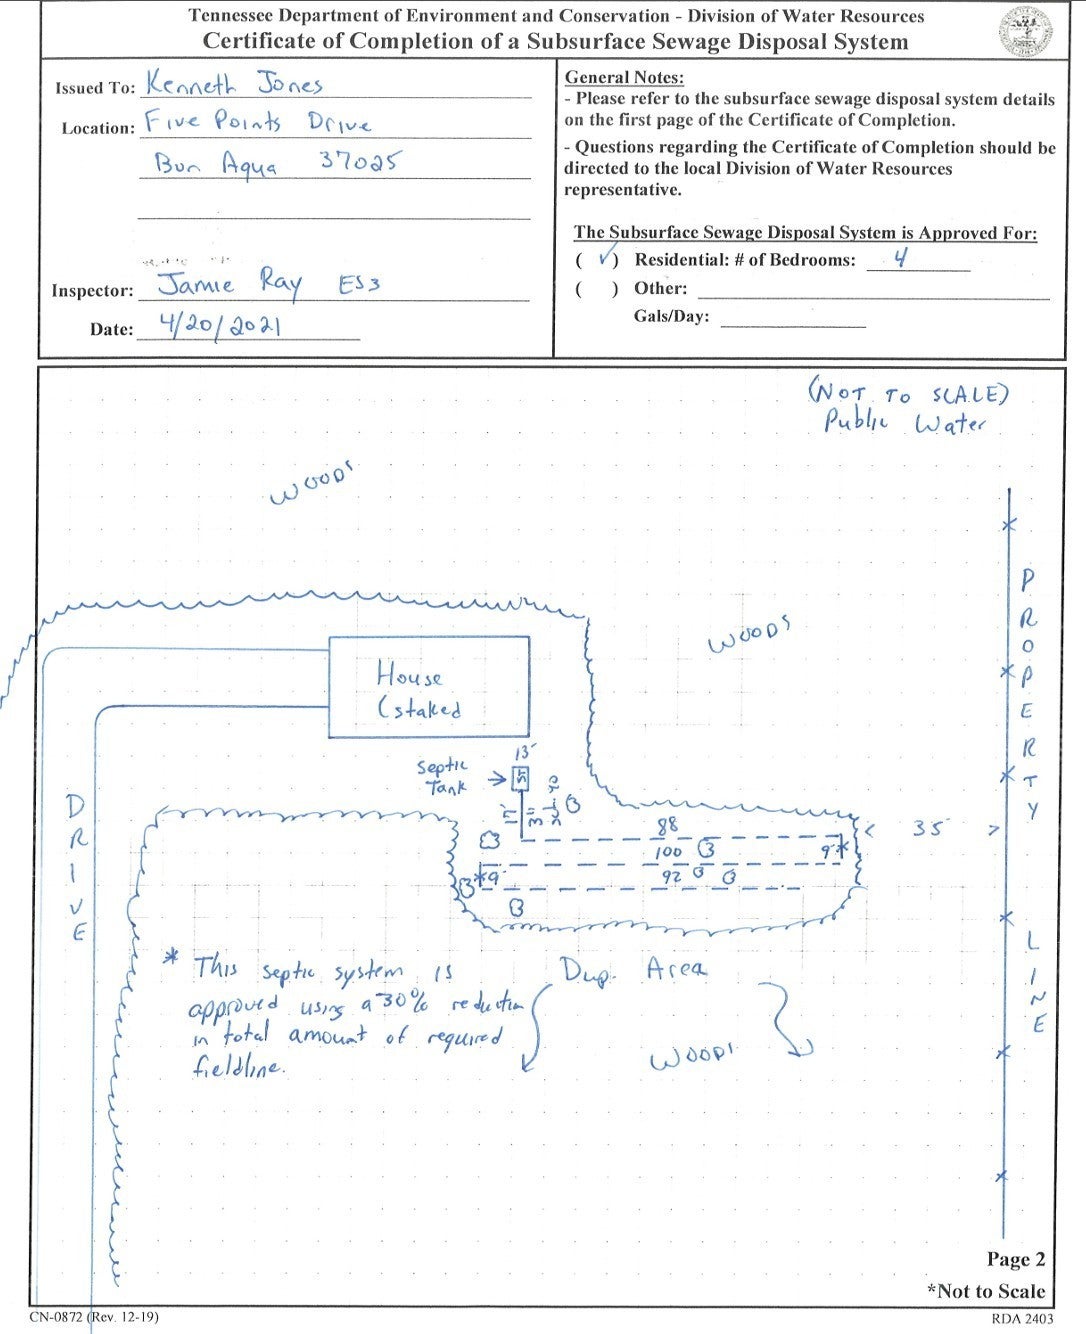 Tennessee Department of Environment and Conservation - Division of Water Resources
Certificate of Completion of a Subsurface Sewage Disposal System
Issued To: Kenneth Jones
Location: Five Points Drive
Bon Aqua 37025
Inspector: Jamie Ray ES3
Date: 4/20/2021
General Notes:
- Please refer to the subsurface sewage disposal system details
on the first page of the Certificate of Completion.
- Questions regarding the Certificate of Completion should be
directed to the local Division of Water Resources
representative.
The Subsurface Sewage Disposal System is Approved For:
( ✓ ) Residential: # of Bedrooms: 4
( ) Other:
Gals/Day:
(NOT TO SCALE)
Public Water
WOODS
WOODS
PROPERTY LINE
House
(staked
13'
Septic
Tank
ST
DRIVE
88
35
100
9'*
*9'
92
* This septic system is
approved using a 30% reduction
in total amount of required
fieldline.
Dup. Area
WOODS
Page 2
*Not to Scale
CN-0872 (Rev. 12-19)
RDA 2403